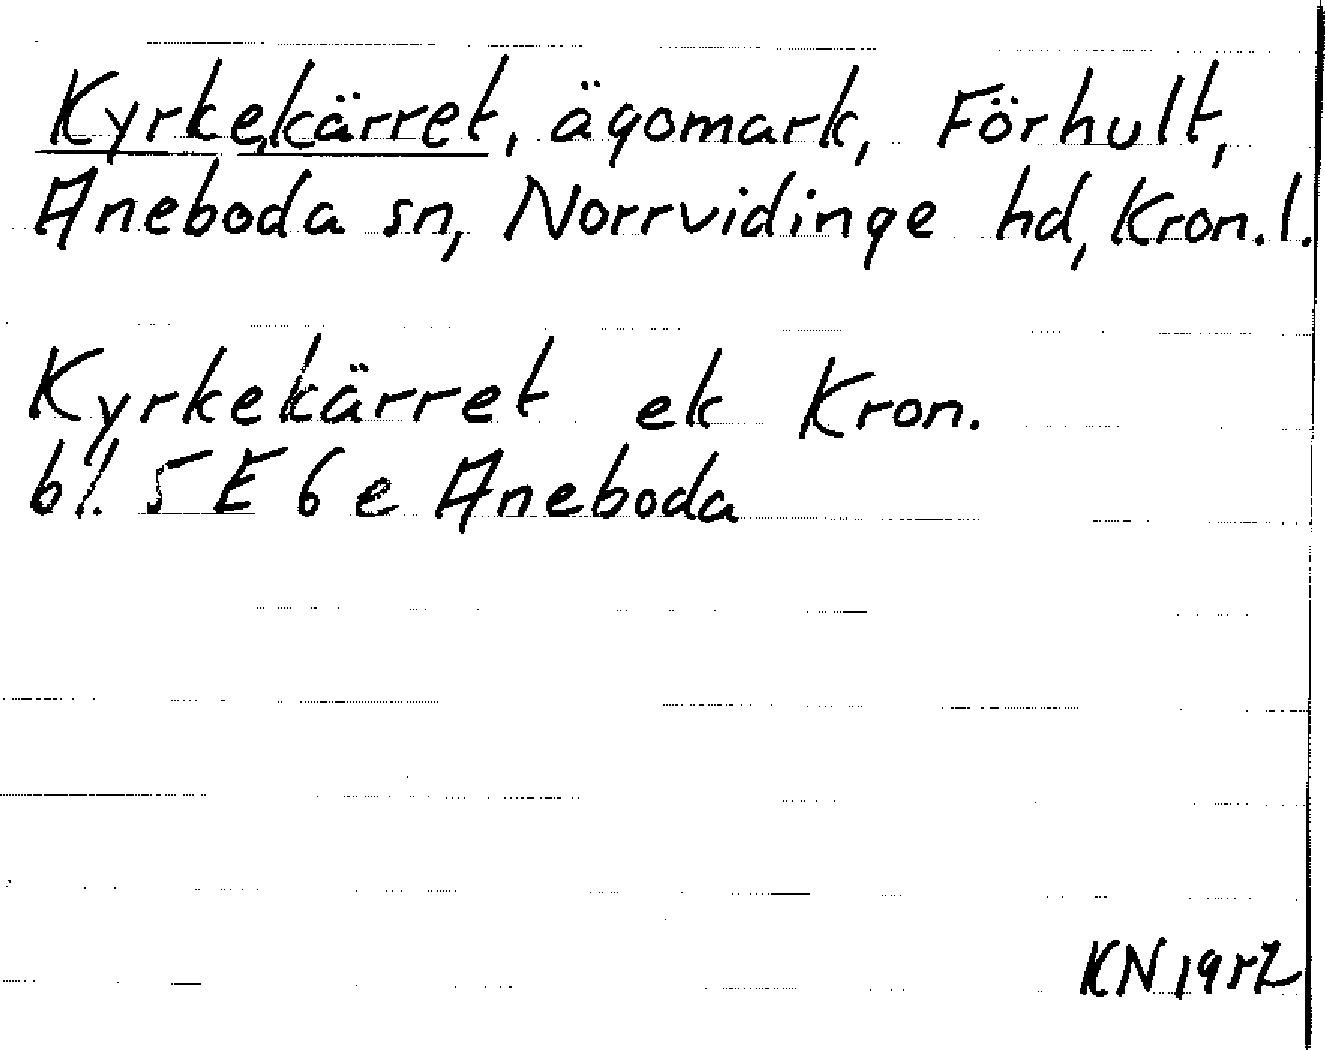 Kyrkekärret, ägomark, Förhult,
Aneboda sn, Norrvidinge hd, Kron.l.
Kyrkekärret ek Kron.
bl. 5 E 6 e Aneboda
KN